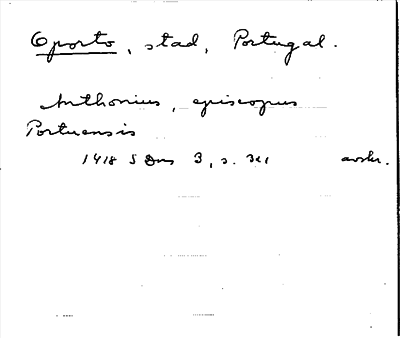 Oporto, stad, Portugal.
Anthonius, episcopus
Portuensis
1418 S Dns 3, s. 321 avskr.